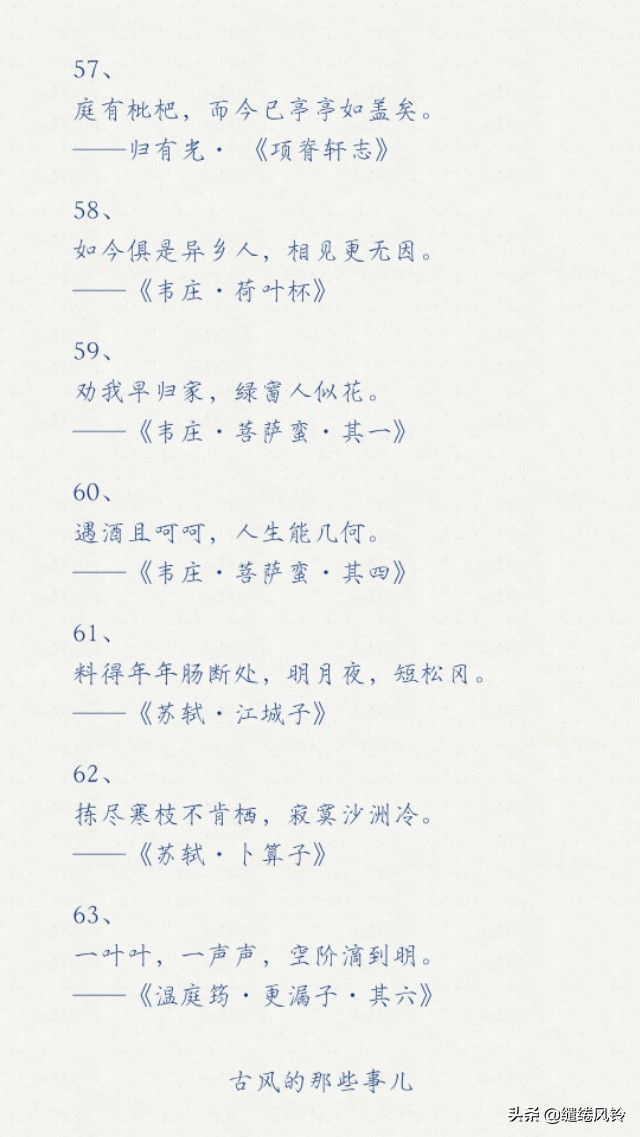 57、
庭有枇杷，而今已亭亭如盖矣。
——归有光· 《项脊轩志》
58、
如今俱是异乡人，相见更无因。
——《韦庄·荷叶杯》
59、
劝我早归家，绿窗人似花。
——《韦庄·菩萨蛮·其一》
60、
遇酒且呵呵，人生能几何。
——《韦庄·菩萨蛮·其四》
61、
料得年年肠断处，明月夜，短松冈。
——《苏轼·江城子》
62、
拣尽寒枝不肯栖，寂寞沙洲冷。
——《苏轼·卜算子》
63、
一叶叶，一声声，空阶滴到明。
——《温庭筠·更漏子·其六》
古风的那些事儿
头条 @缱绻风铃